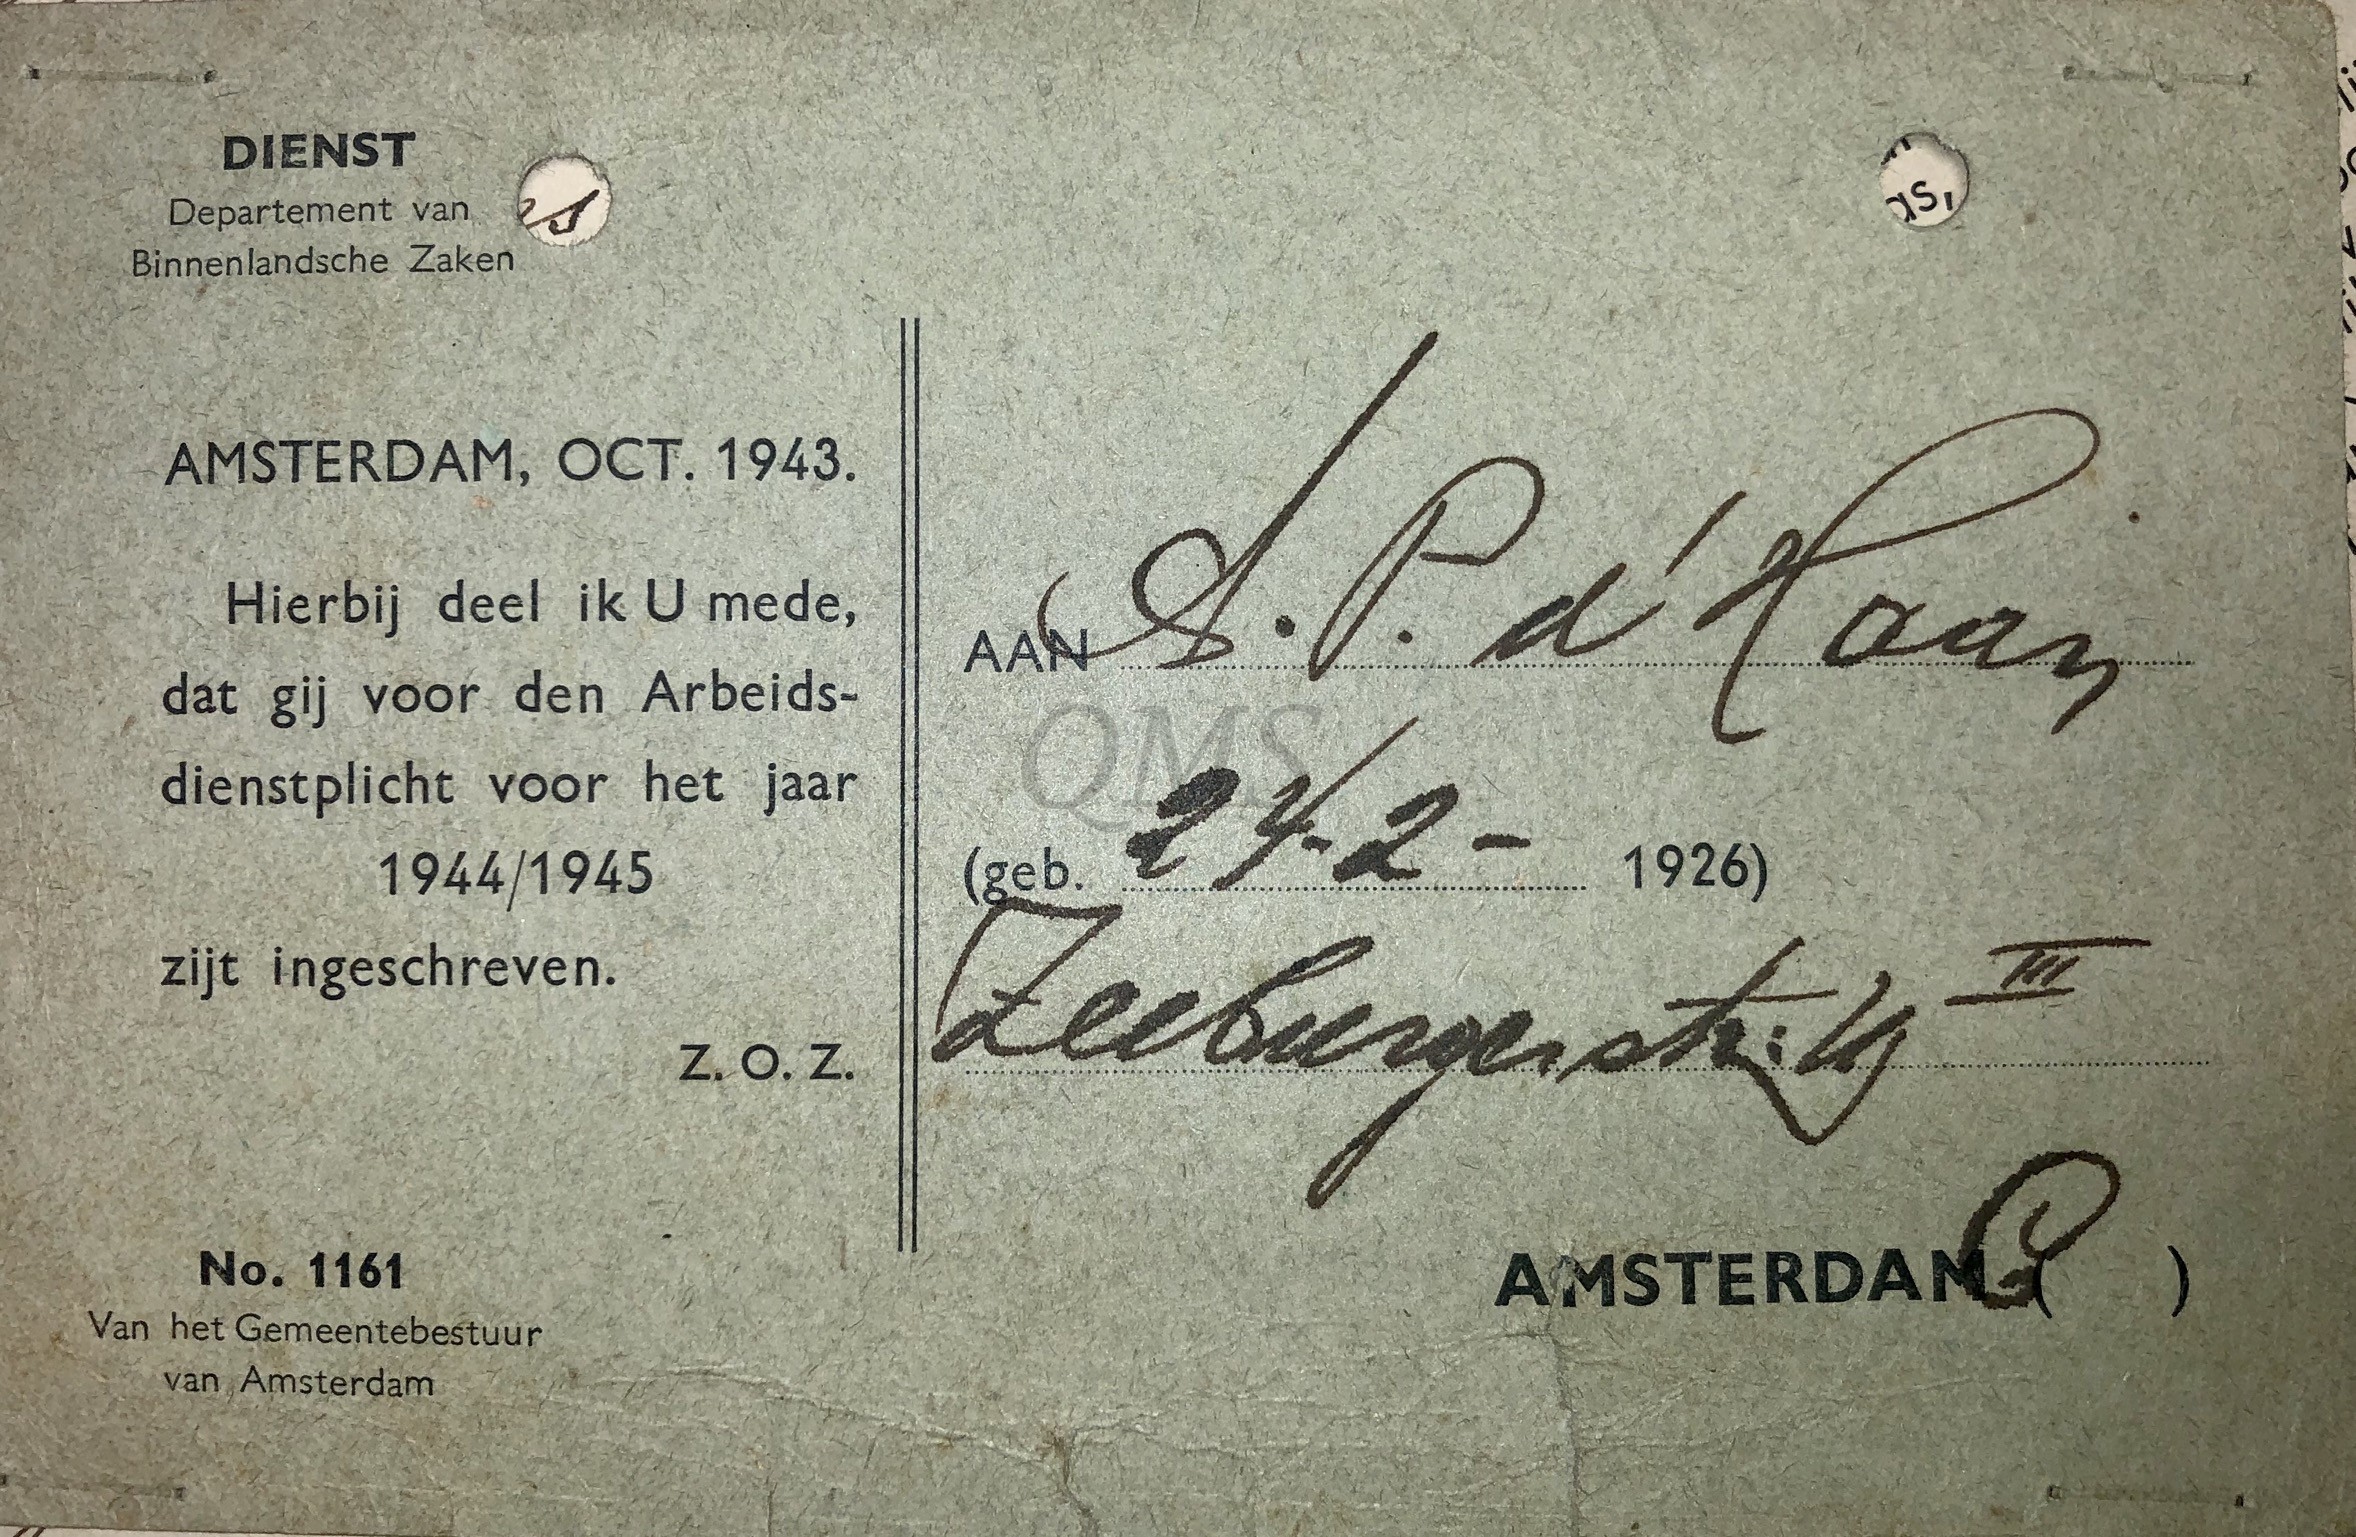 DIENST
Departement van
Binnenlandsche Zaken
AMSTERDAM, OCT. 1943.
Hierbij deel ik U mede,
dat gij voor den Arbeids-
dienstplicht voor het jaar
1944/1945
zijt ingeschreven.
Z. O. Z.
No. 1161
Van het Gemeentebestuur
van Amsterdam
AAN A. P. d'Haan
QMS
(geb. 24-2- 1926)
Zeeburgerstr: III
AMSTERDAM ( )